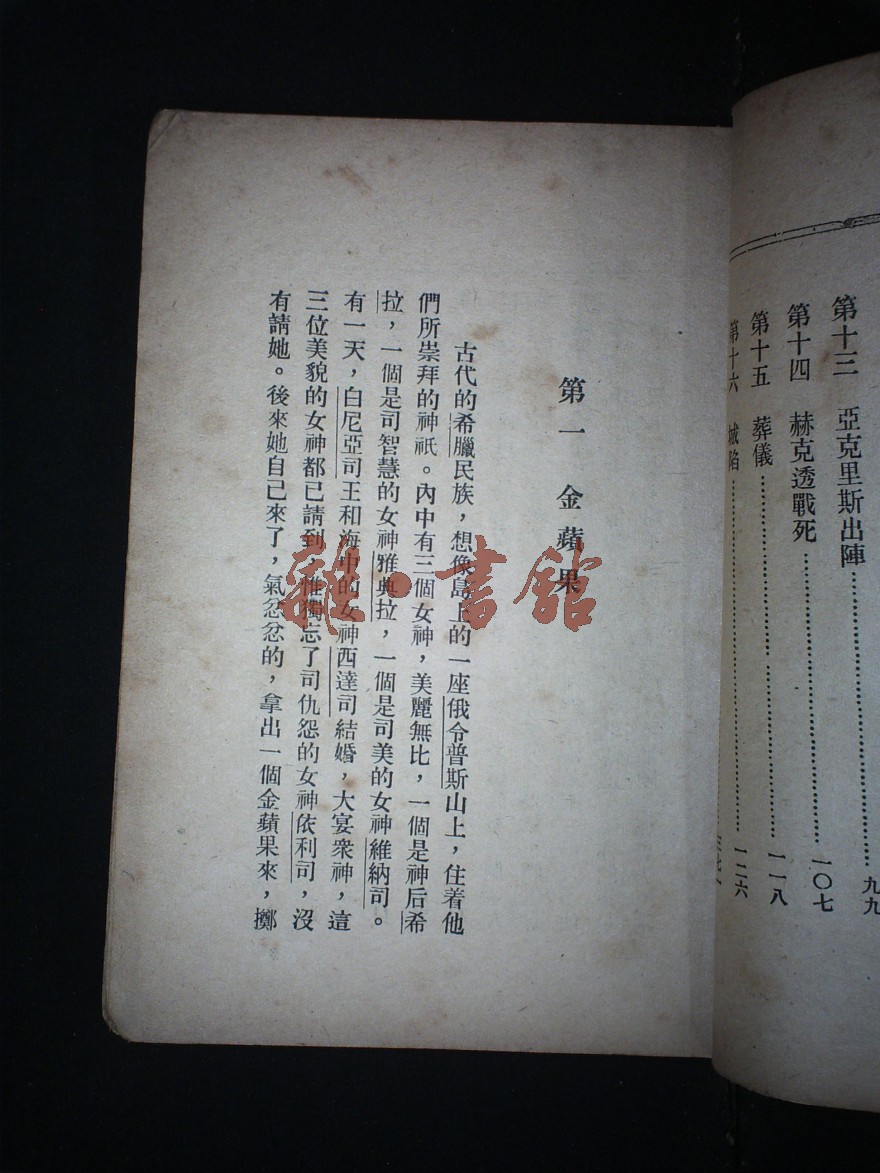 第十三　亞克里斯出陣……九九
第十四　赫克透戰死……一〇七
第十五　葬儀……一一八
第十六　城陷……一二六
第一　金蘋果
古代的希臘民族，想像島上的一座俄令普斯山上，住着他
們所崇拜的神祇。內中有三個女神，美麗無比，一個是神后希
拉，一個是司智慧的女神雅典拉，一個是司美的女神維納司。
有一天，白尼亞司王和海中的女神西達司結婚，大宴衆神，這
三位美貌的女神都已請到，惟獨忘了司仇怨的女神依利司，沒
有請她。後來她自己來了，氣忿忿的，拿出一個金蘋果來，擲
雜·書館